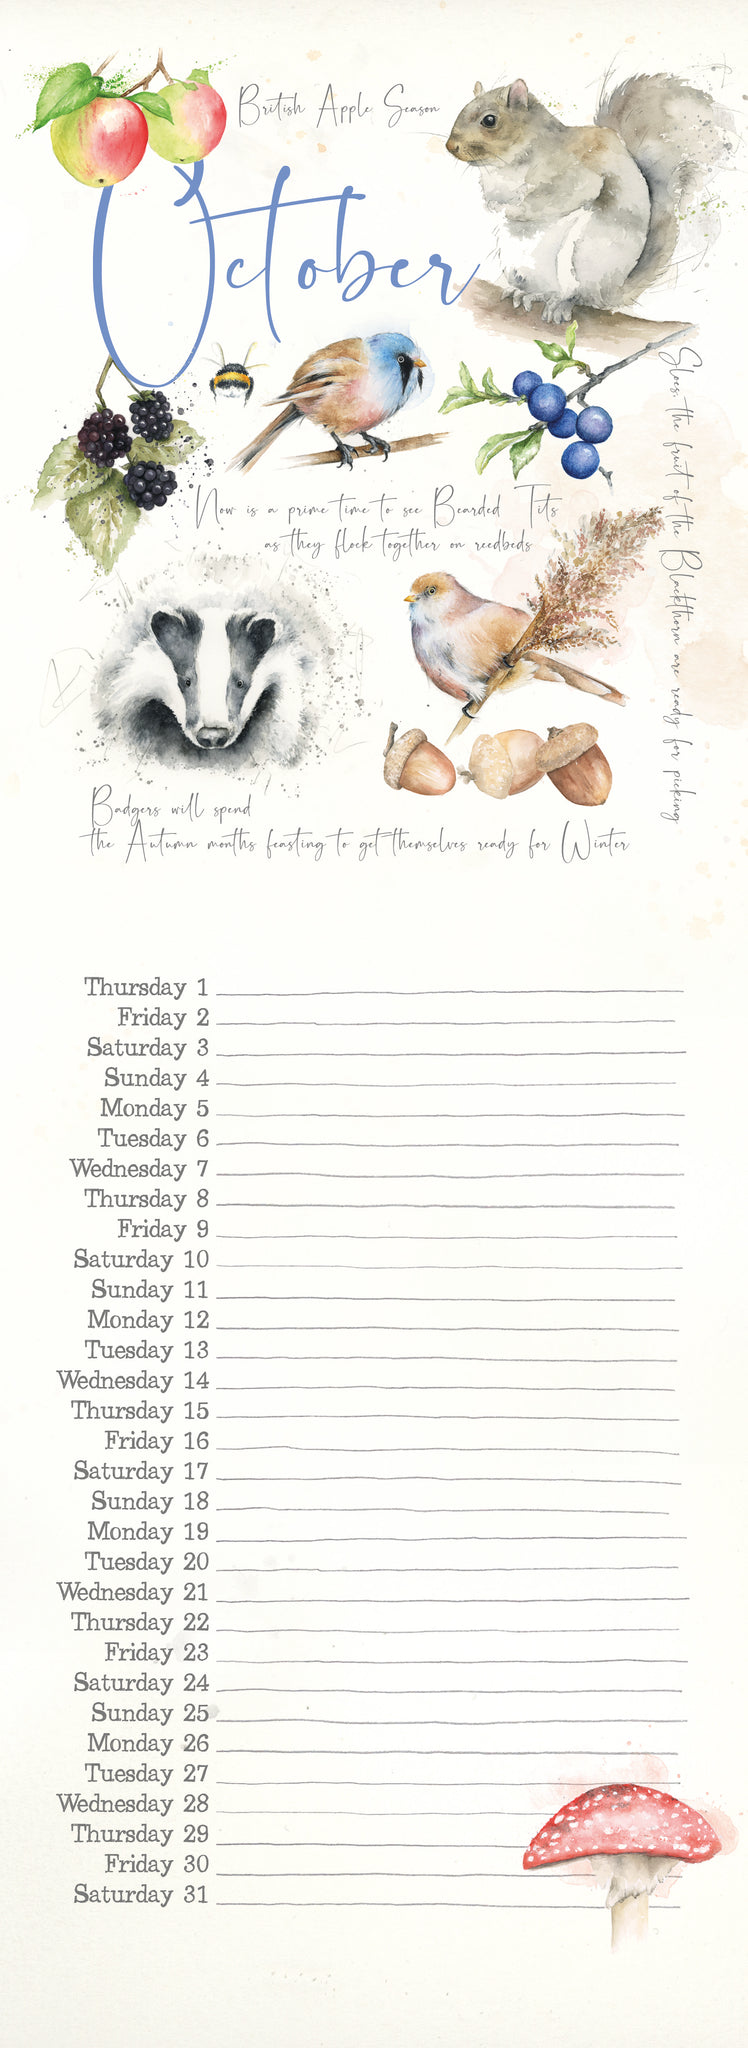 British Apple Season
October
Sloes, the fruit of the Blackthorn are ready for picking
Now is a prime time to see Bearded Tits
as they flock together on reedbeds
Badgers will spend
the Autumn months feasting to get themselves ready for Winter
Thursday 1
Friday 2
Saturday 3
Sunday 4
Monday 5
Tuesday 6
Wednesday 7
Thursday 8
Friday 9
Saturday 10
Sunday 11
Monday 12
Tuesday 13
Wednesday 14
Thursday 15
Friday 16
Saturday 17
Sunday 18
Monday 19
Tuesday 20
Wednesday 21
Thursday 22
Friday 23
Saturday 24
Sunday 25
Monday 26
Tuesday 27
Wednesday 28
Thursday 29
Friday 30
Saturday 31